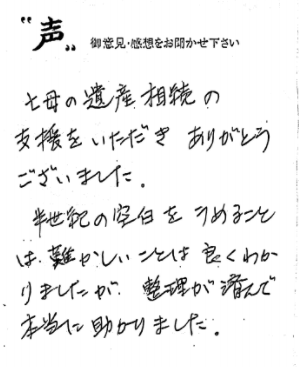 "声" 御意見・感想をお聞かせ下さい
亡母の遺産相続の
支援をいただき ありがとう
ございました。
半世紀の空白を うめること
は 難かしいことは 良くわか
りましたが 整理が済んで
本当に助かりました。